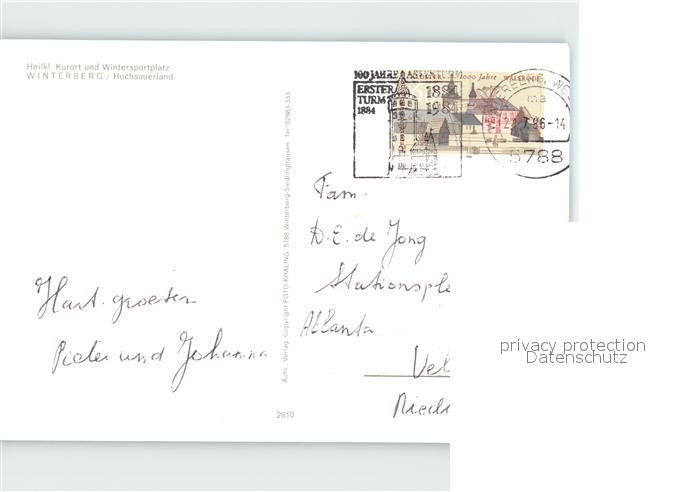 Heilkl. Kurort und Wintersportplatz
WINTERBERG / Hochsauerland
100 JAHRE ASTENTURM
ERSTER
TURM
1884
1884
1984
1000 Jahre WALSRODE
.7.86-14
5788
Fam.
D.E. de Jong
Stationsple
Atlanta
Vel
Niede
Hart. groeten
Pieter und Johanna
Aufn. Verlag Copyright FOTO-KRALING, 5788 Winterberg-Siedlinghausen, Tel 02983-333
2610
privacy protection
Datenschutz